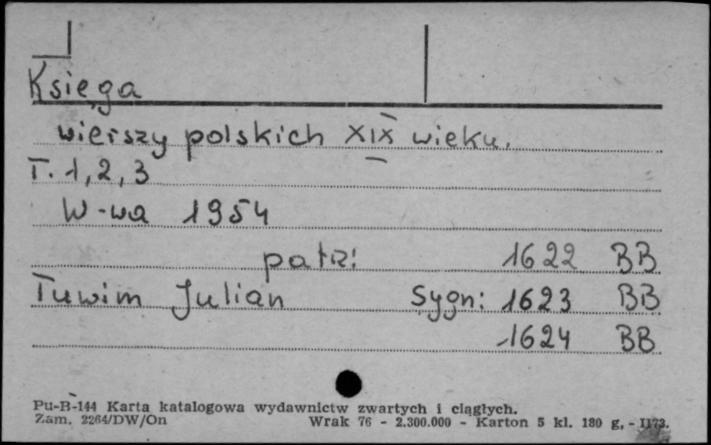 Księga
wierszy polskich XIX wieku.
T. 1, 2, 3
W-wa 1954
patrz: 1622 BB
Tuwim Julian Sygn: 1623 BB
1624 BB
Pu-B-144 Karta katalogowa wydawnictw zwartych i ciągłych.
Zam. 2264/DW/On Wrak 76 - 2.300.000 - Karton 5 kl. 180 g, - II73.